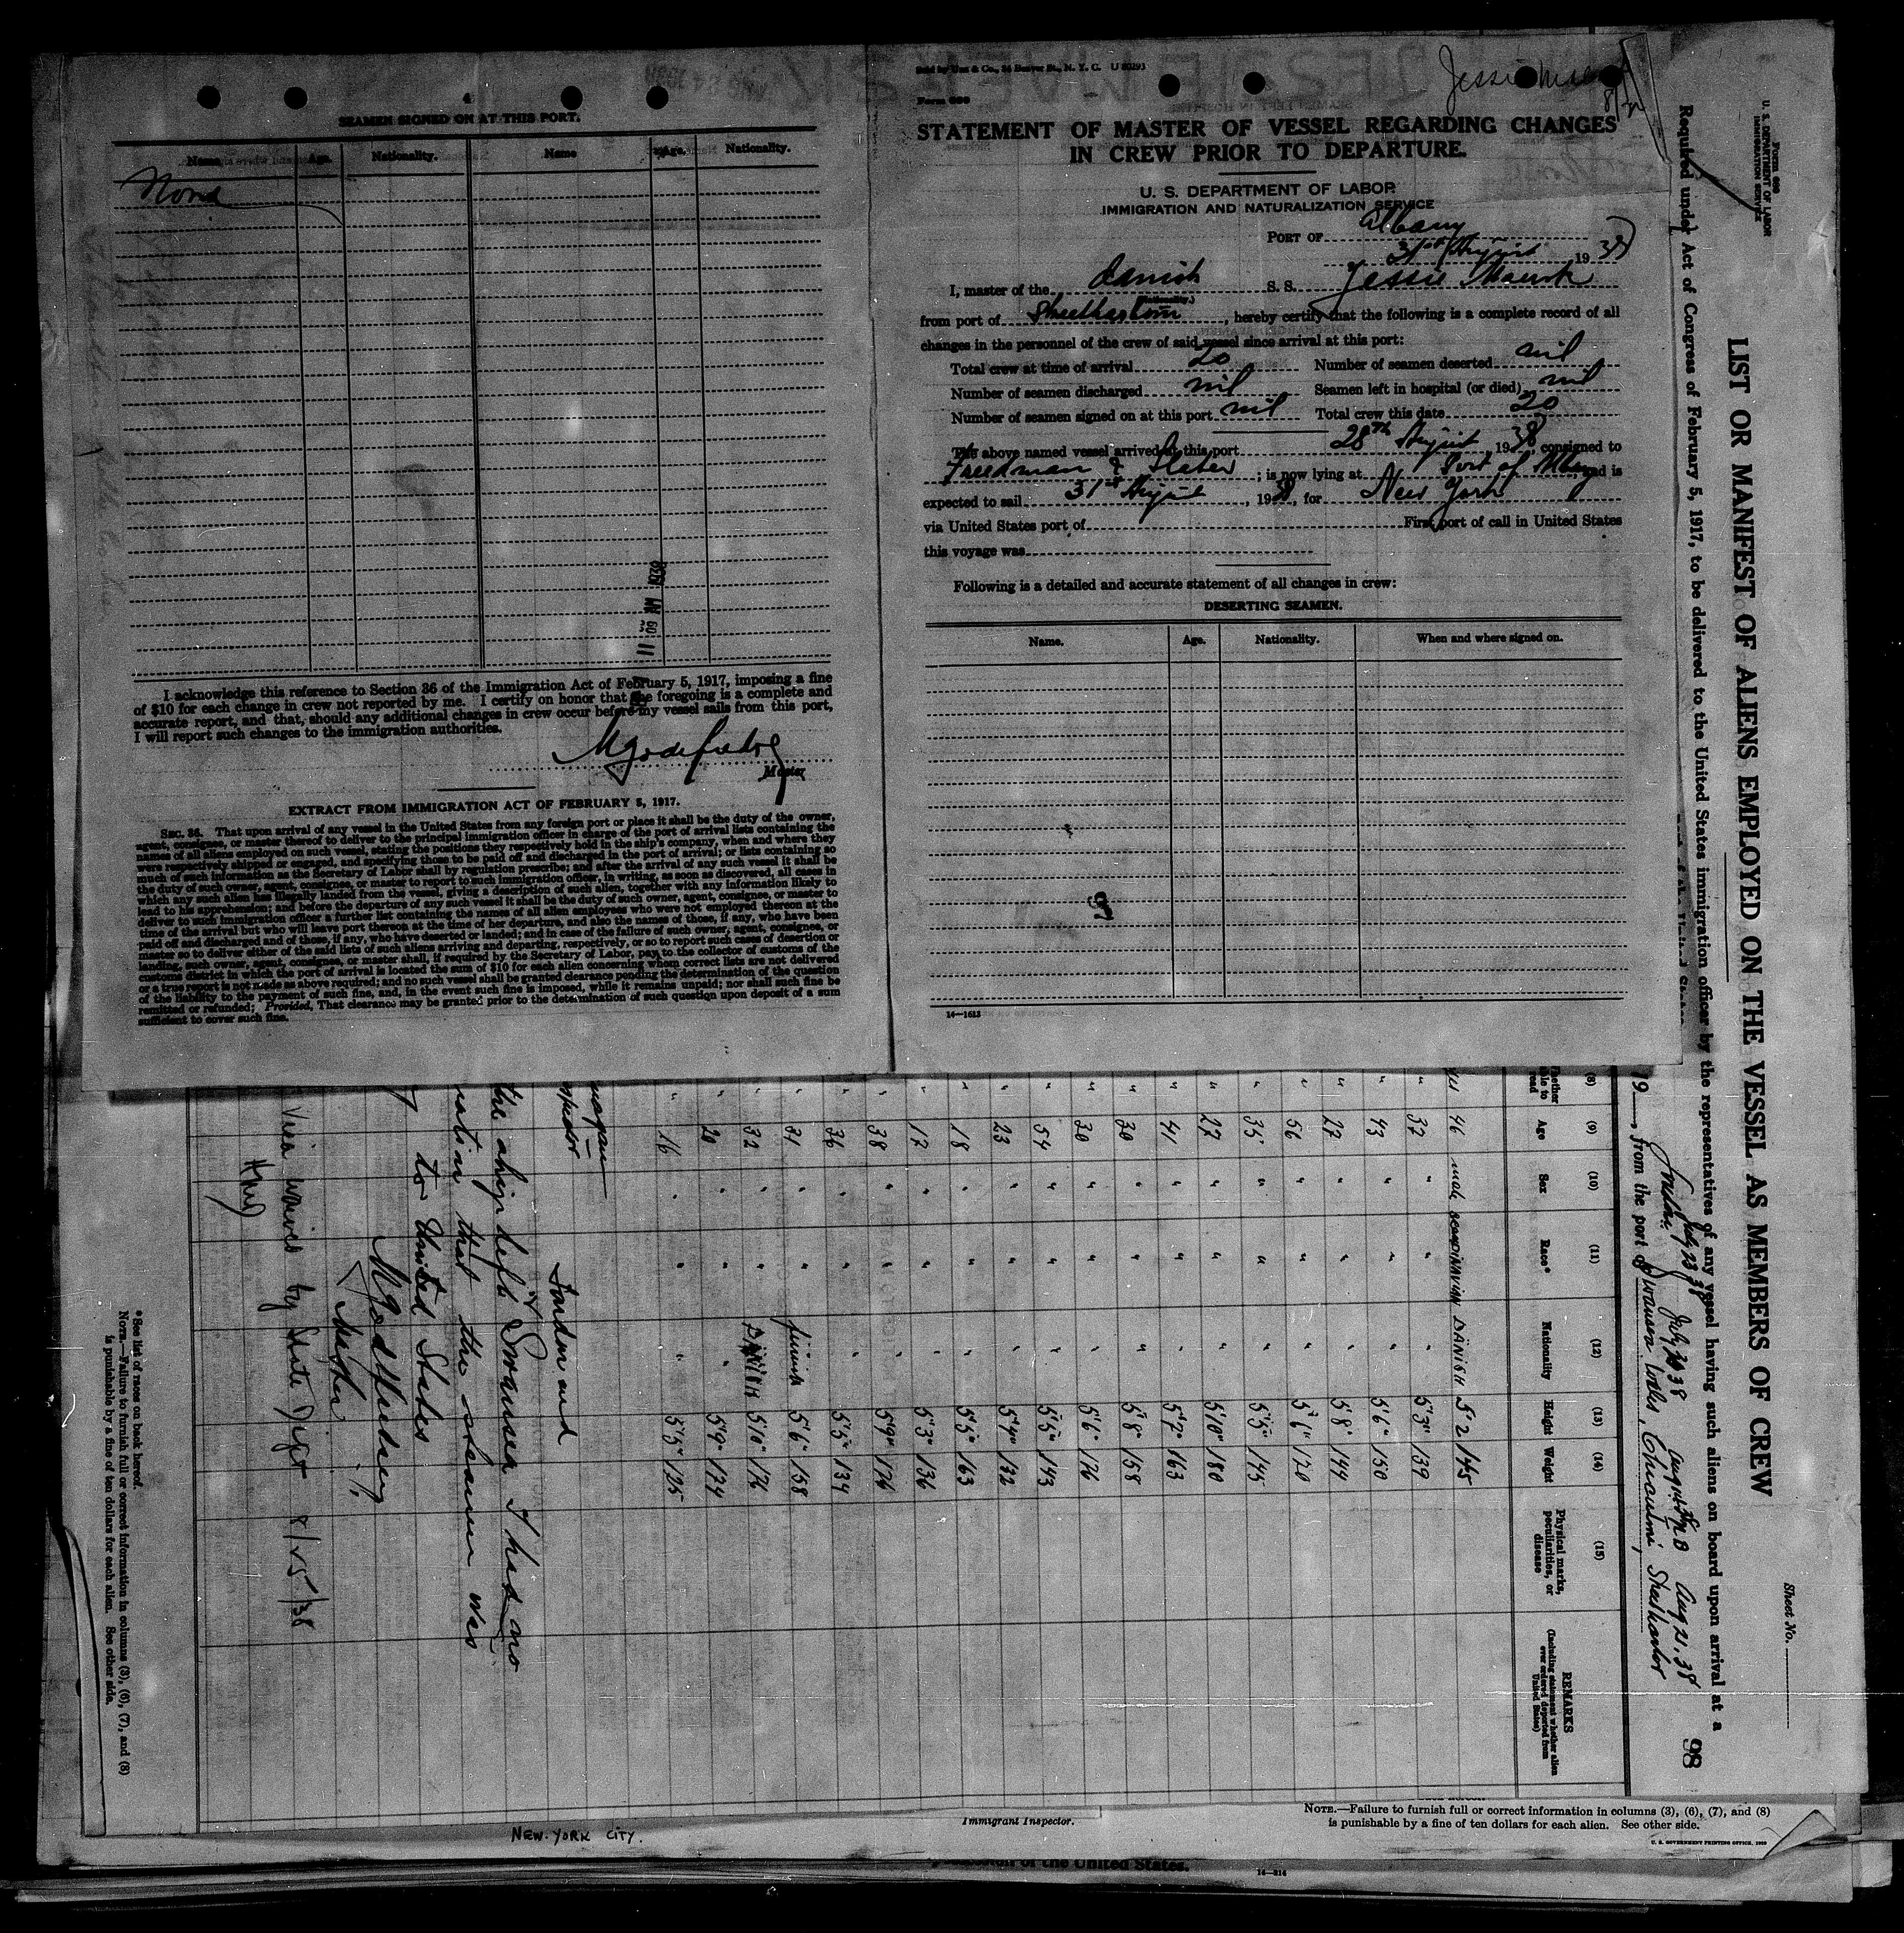 4
SEAMEN SIGNED ON AT THIS PORT.
Name Age. Nationality. Name Age. Nationality.
None
1938
I acknowledge this reference to Section 36 of the Immigration Act of February 5, 1917, imposing a fine
of $10 for each change in crew not reported by me. I certify on honor that the foregoing is a complete and
accurate report, and that, should any additional changes in crew occur before my vessel sails from this port,
I will report such changes to the immigration authorities.
Master
EXTRACT FROM IMMIGRATION ACT OF FEBRUARY 5, 1917.
SEC. 36. That upon arrival of any vessel in the United States from any foreign port or place it shall be the duty of the owner,
agent, consignee, or master thereof to deliver to the principal immigration officer in charge of the port of arrival lists containing the
names of all aliens employed on such vessel, stating the positions they respectively hold in the ship's company, when and where they
were respectively shipped or engaged, and specifying those to be paid off and discharged in the port of arrival; or lists containing so
much of such information as the Secretary of Labor shall by regulation prescribe; and after the arrival of any such vessel it shall be
the duty of such owner, agent, consignee, or master to report to such immigration officer, in writing, as soon as discovered, all cases in
which any such alien has illegally landed from the vessel, giving a description of such alien, together with any information likely to
lead to his apprehension; and before the departure of any such vessel it shall be the duty of such owner, agent, consignee, or master to
deliver to such immigration officer a further list containing the names of all alien employees who were not employed thereon at the
time of the arrival but who will leave port thereon at the time of her departure, and also the names of those, if any, who have been
paid off and discharged and of those, if any, who have deserted or landed; and in case of the failure of such owner, agent, consignee, or
master so to deliver either of the said lists of such aliens arriving and departing, respectively, or so to report such cases of desertion or
landing, such owner, agent, consignee, or master shall, if required by the Secretary of Labor, pay to the collector of customs of the
customs district in which the port of arrival is located the sum of $10 for each alien concerning whom correct lists are not delivered
or a true report is not made as above required; and no such vessel shall be granted clearance pending the determination of the question
of the liability to the payment of such fine, and, in the event such fine is imposed, while it remains unpaid; nor shall such fine be
remitted or refunded; Provided, That clearance may be granted prior to the determination of such question upon deposit of a sum
sufficient to cover such fine.
Form 689
STATEMENT OF MASTER OF VESSEL REGARDING CHANGES
IN CREW PRIOR TO DEPARTURE.
U. S. DEPARTMENT OF LABOR
IMMIGRATION AND NATURALIZATION SERVICE
PORT OF Albany
31st August 1938
I, master of the danish S. S. Jessie Maersk
(Nationality.)
from port of , hereby certify that the following is a complete record of all
changes in the personnel of the crew of said vessel since arrival at this port:
Total crew at time of arrival 20 Number of seamen deserted nil
Number of seamen discharged nil Seamen left in hospital (or died) nil
Number of seamen signed on at this port nil Total crew this date 20
The above named vessel arrived at this port 28th August 1938, consigned to
Freedman & Slater; is now lying at Port of Albany and is
expected to sail 31st August, 1938, for New York
via United States port of First port of call in United States
this voyage was
Following is a detailed and accurate statement of all changes in crew:
DESERTING SEAMEN.
Name. Age. Nationality. When and where signed on.
14—1613
Form 689
U. S. DEPARTMENT OF LABOR
IMMIGRATION SERVICE
Sheet No.
LIST OR MANIFEST OF ALIENS EMPLOYED ON THE VESSEL AS MEMBERS OF CREW
Required under Act of Congress of February 5, 1917, to be delivered to the United States immigration officer by the representatives of any vessel having such aliens on board upon arrival at a
98
July 23 38 Aug 21. 38
19, from the port of Swansea Wales, Chicoutimi, Sheetharbor
(8) (9) (10) (11) (12) (13) (14) (15)
Age Sex Race* Nationality Height Weight Physical marks, peculiarities, or disease REMARKS (Including statement whether alien ever ordered deported from United States)
yes 46 male SCANDINAVIAN DANISH 5'2 145
" 37 " " " 5'3" 139
" 43 " " " 5'6" 150
" 27 " " " 5'8" 144
" 56 " " " 5'6" 170
" 35 " " " 5'5" 145
" 27 " " " 5'10" 180
" 41 " " " 5'7" 163
" 30 " " " 5'8" 158
" 30 " " " 5'6" 176
" 54 " " " 5'5" 143
" 23 " " " 5'4" 132
" 18 " " " 5'5" 163
" 17 " " " 5'3" 136
" 38 " " " 5'9" 176
" 36 " " " 5'5" 134
" 31 " " finnish 5'6" 158
" 32 " " DANISH 5'10" 176
" 20 " " " 5'9" 174
" 16 " " " 5'5" 125
London and
the ship left Swansea I had no
that the steamer was
to United States
Master
Visa waived by State Dept 8/25/38
*See list of races on back hereof.
NOTE.—Failure to furnish full or correct information in columns (3), (6), (7), and (8)
is punishable by a fine of ten dollars for each alien. See other side.
Immigrant Inspector.
NEW YORK CITY.
NOTE.—Failure to furnish full or correct information in columns (3), (6), (7), and (8)
is punishable by a fine of ten dollars for each alien. See other side.
U. S. GOVERNMENT PRINTING OFFICE
of the United States.
14—214